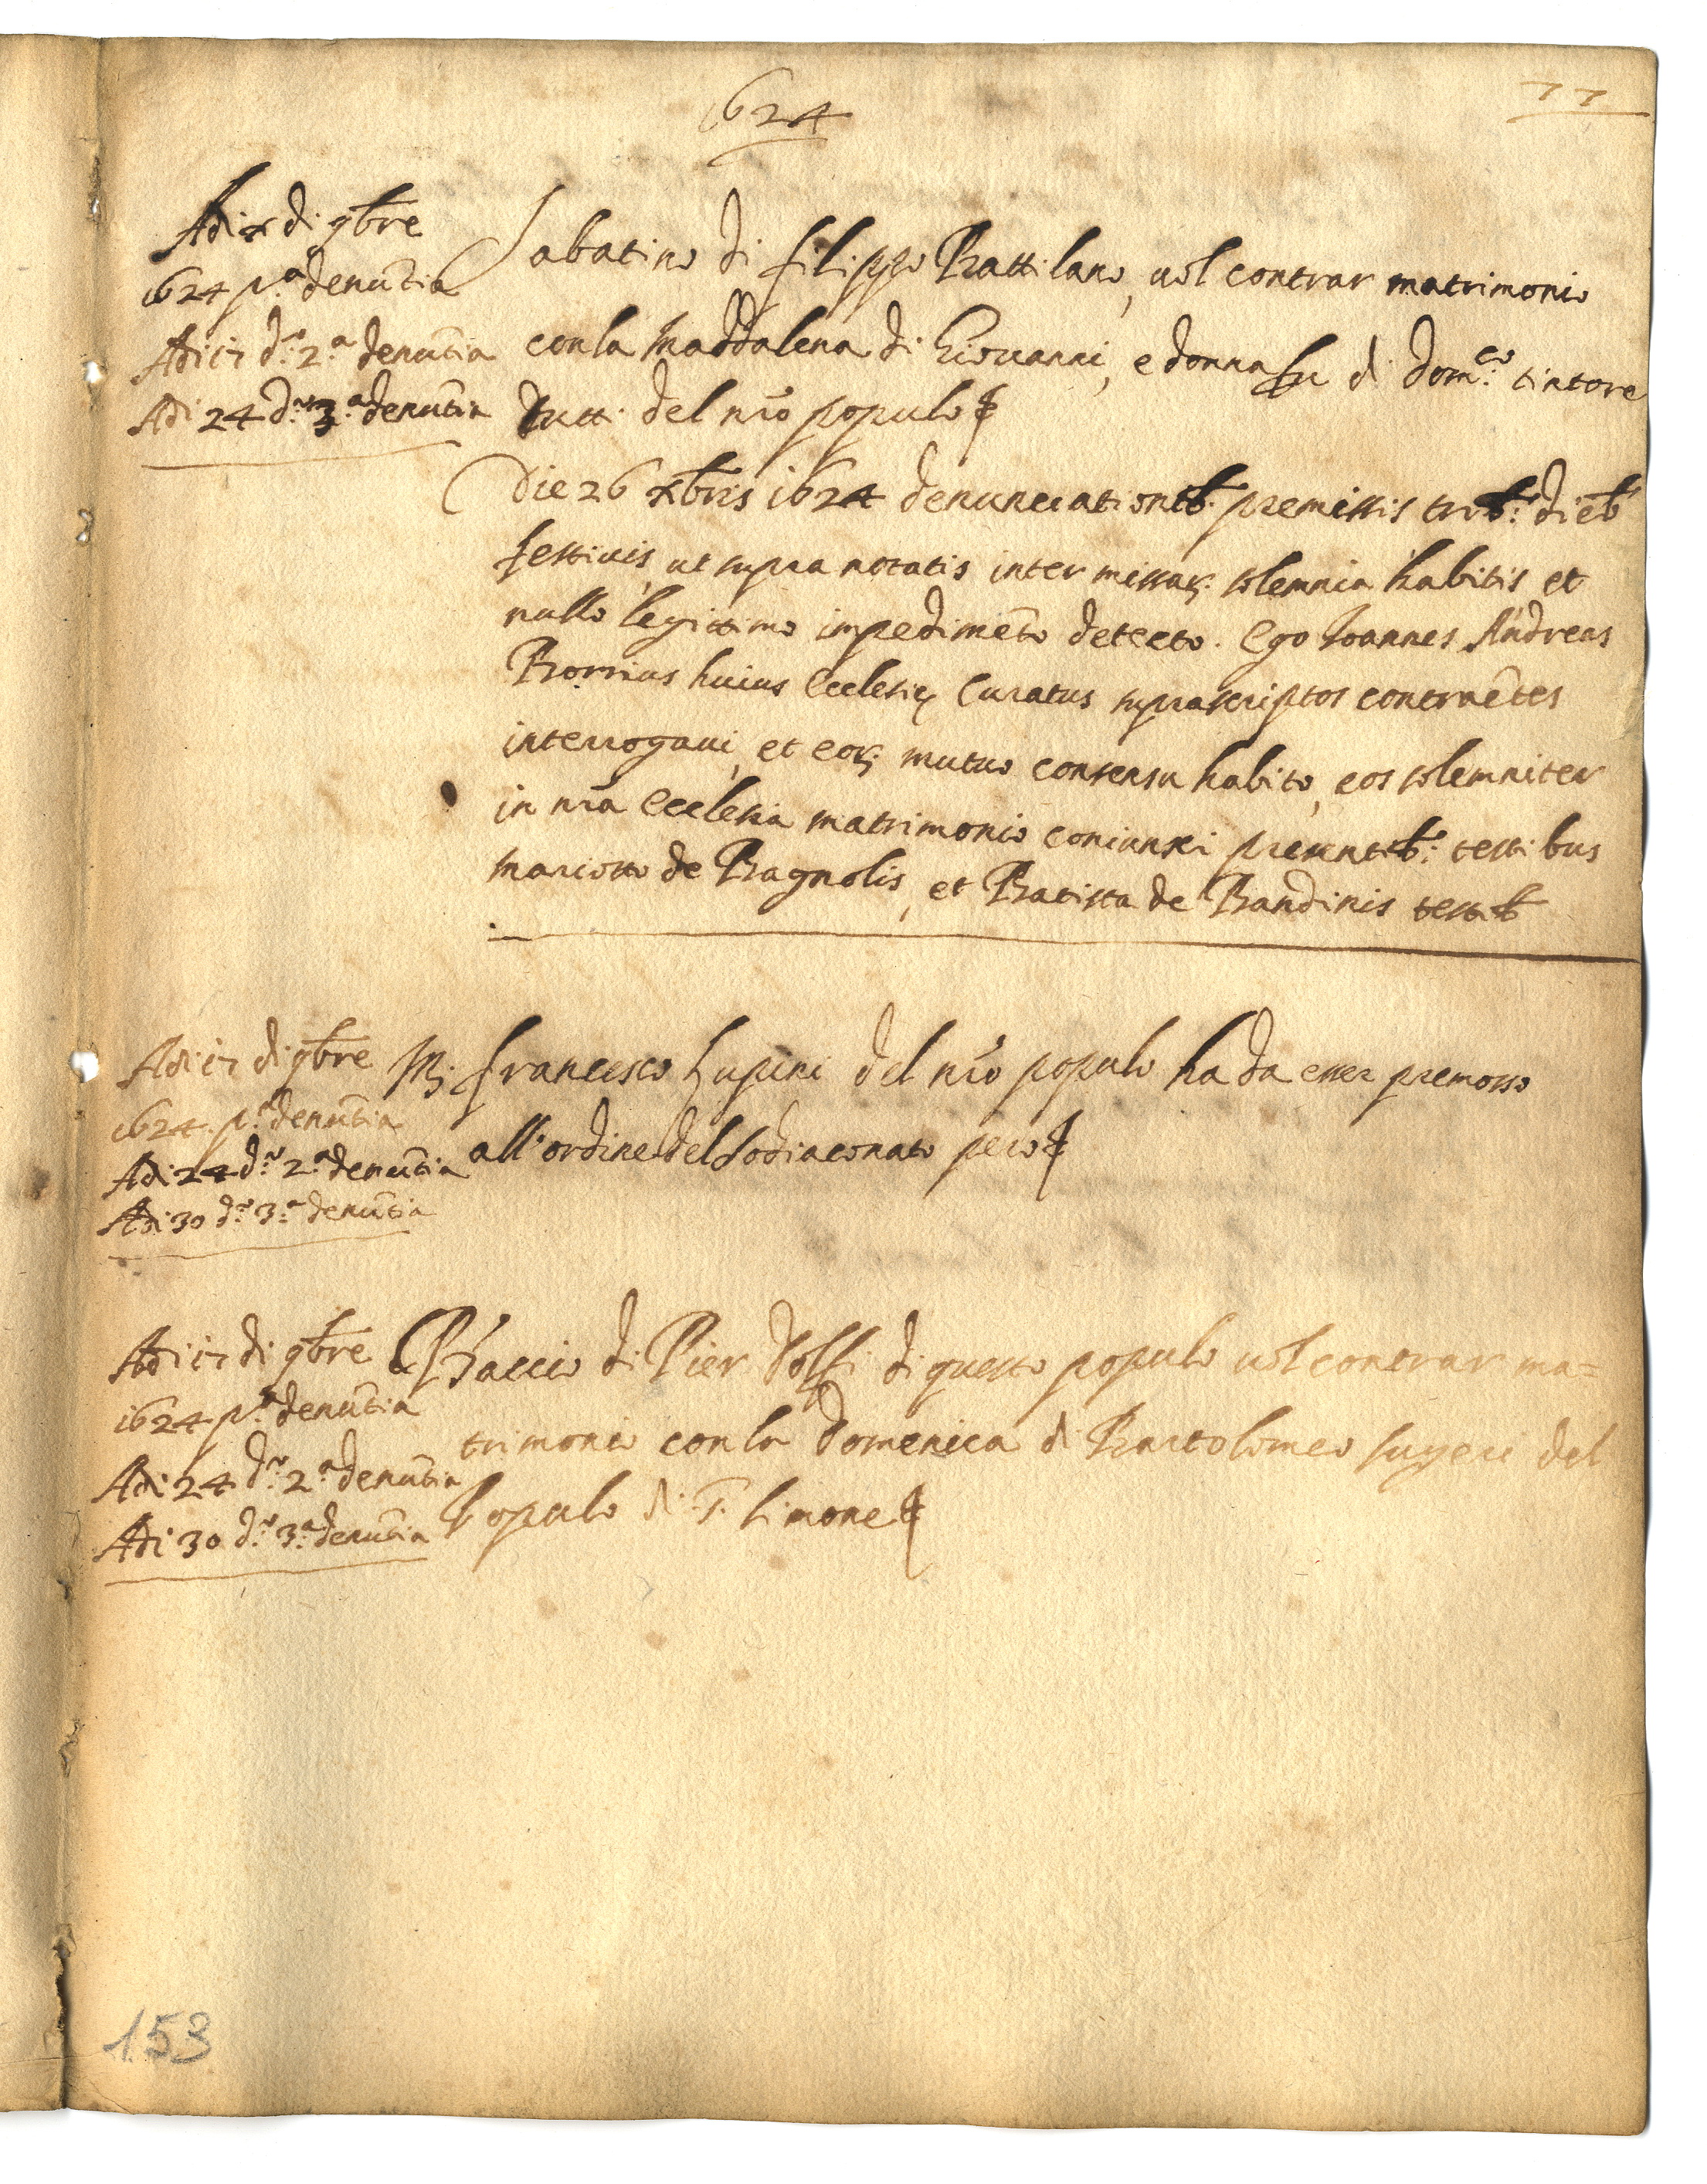 1624
77
Adi x di 9bre
1624 p.a denũtia
Adi 17 d.o 2.a denũtia
Adi 24 d.o 3.a denũtia
Sabatino di filippo Battilano, uol contrar matrimonio
con la Maddalena di Giouanni, e donna fu di Dom.co tintore
tutti del nro populo
Die 26 xbris 1624 denunciationib. premissis trib: dieb
festiuis, ut supra notatis inter missar. solemnia habitis et
nullo legittimo impedimẽto detecto. Ego Joannes Andreas
huius Ecclesię Curatus suprascriptos contraẽtes
interrogaui, et eor. mutuo consensu habito, eos solemniter
in nra Ecclesia matrimonio coniunxi presentib: testibus
Mariotto de Bagnolis, et Batista de Bandinis testib
Adi 17 di 9bre
1624 p.a denũtia
Adi 24 d.o 2.a denũtia
Adi 30 d.o 3.a denũtia
M. francesco Lupini del nro populo ha da esser promosso
all'ordine del Sodiaconato pero
Adi 17 di 9bre
1624 p.a denũtia
Adi 24 d.o 2.a denũtia
Adi 30 d.o 3.a denũtia
Baccio di Pier Dolfi di questo populo uol contrar ma=
trimonio con la Domenica di Bartolomeo del
Populo di S. Simone
153